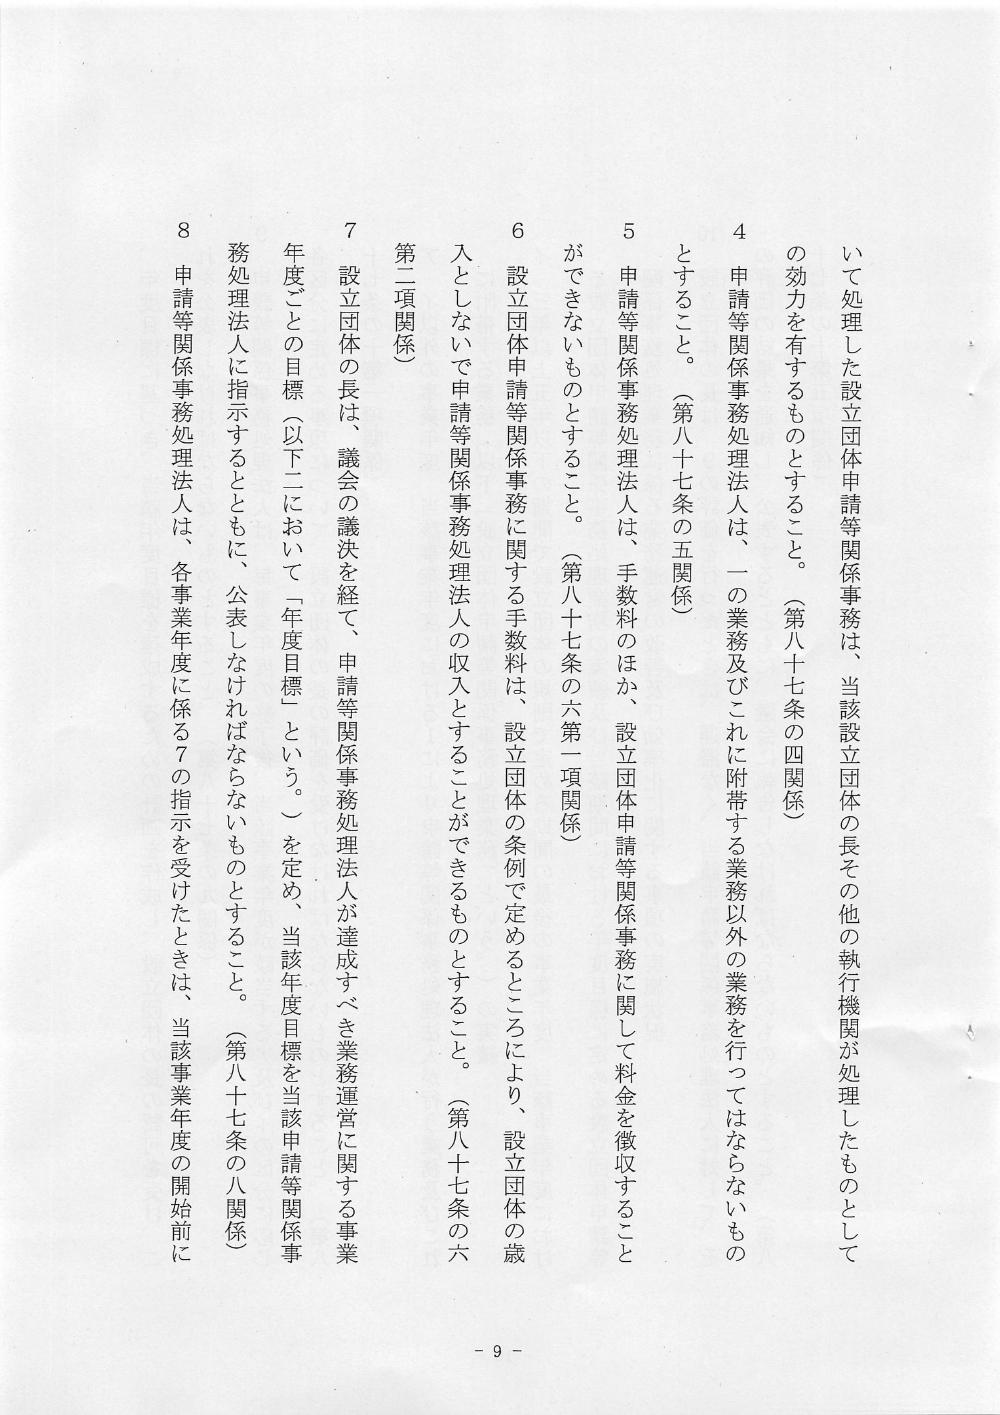 いて処理した設立団体申請等関係事務は、当該設立団体の長その他の執行機関が処理したものとして
の効力を有するものとすること。（第八十七条の四関係）
４　申請等関係事務処理法人は、一の業務及びこれに附帯する業務以外の業務を行ってはならないもの
とすること。（第八十七条の五関係）
５　申請等関係事務処理法人は、手数料のほか、設立団体申請等関係事務に関して料金を徴収すること
ができないものとすること。（第八十七条の六第一項関係）
６　設立団体申請等関係事務に関する手数料は、設立団体の条例で定めるところにより、設立団体の歳
入としないで申請等関係事務処理法人の収入とすることができるものとすること。（第八十七条の六
第二項関係）
７　設立団体の長は、議会の議決を経て、申請等関係事務処理法人が達成すべき業務運営に関する事業
年度ごとの目標（以下二において「年度目標」という。）を定め、当該年度目標を当該申請等関係事
務処理法人に指示するとともに、公表しなければならないものとすること。（第八十七条の八関係）
８　申請等関係事務処理法人は、各事業年度に係る７の指示を受けたときは、当該事業年度の開始前に
- 9 -